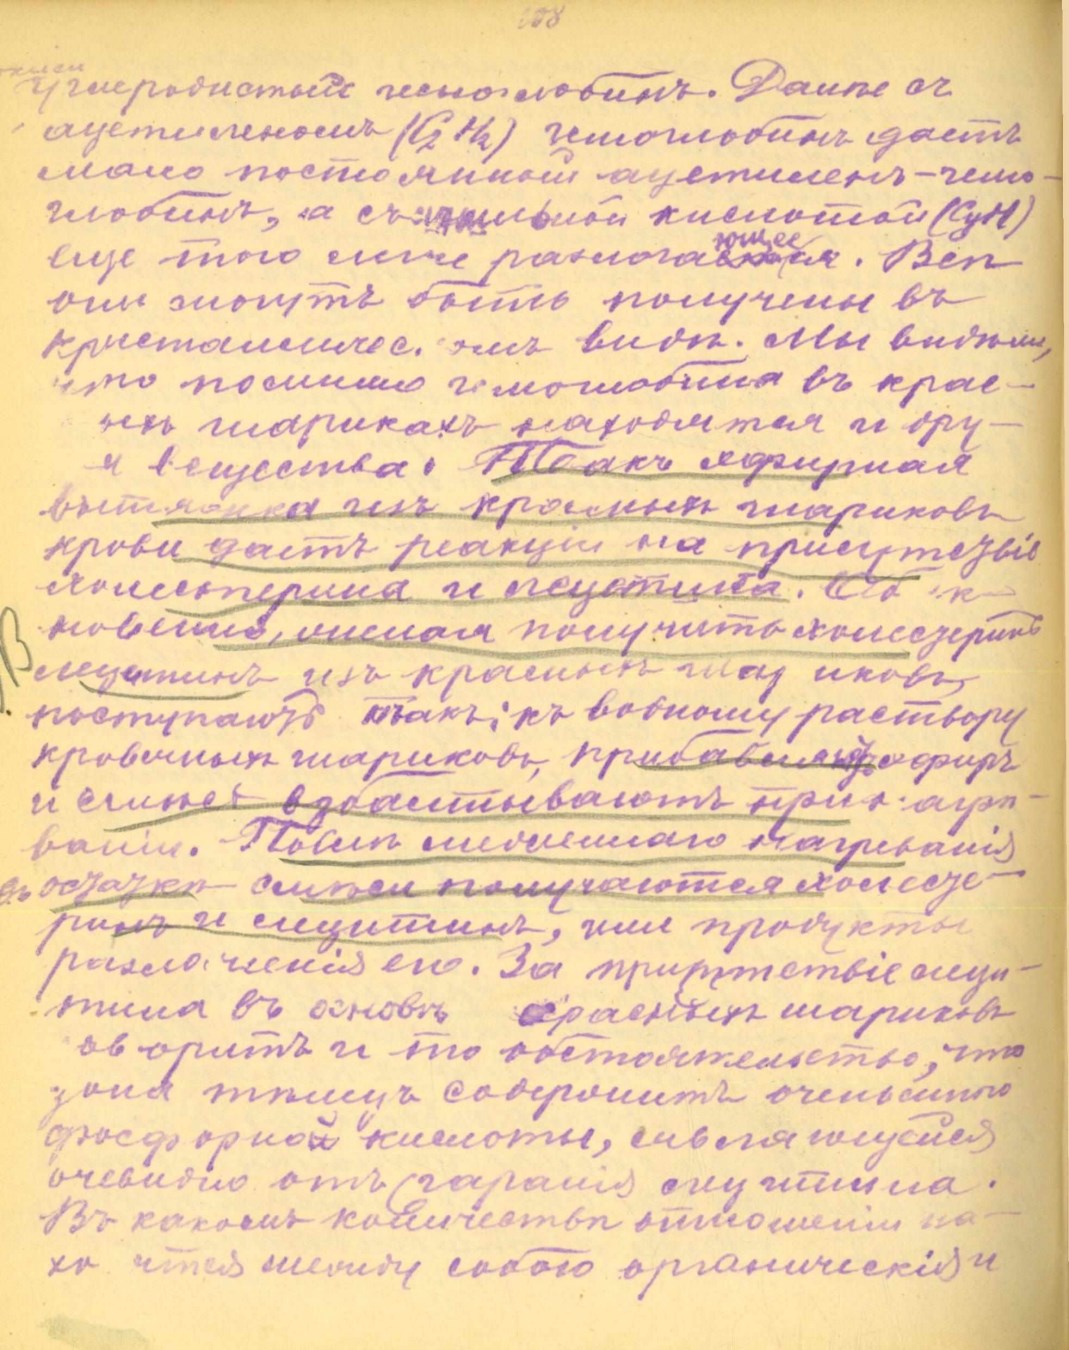 108
окиси
углеродистый гемоглобинъ. Далѣе съ
ацетиленомъ (C2H2) гемоглобинъ даетъ
мало постоянный ацетиленъ-гемо-
глобинъ, а съ синильной кислотой (CyH)
еще того легче разлагающееся. Всѣ
они могутъ быть получены въ
кристалличес. омъ видѣ. Мы видѣли,
что помимо гемоглобина въ крас-
ныхъ шарикахъ находятся и дру-
я вещества. Такъ эфирная
вытяжка изъ красныхъ шариковъ
крови даетъ реакціи на присутствіе
холестерина и лецитина. Обык-
новенно, желая получить холестеринъ
лецитинъ изъ красныхъ шариковъ,
поступаютъ такъ: къ водному раствору
кровяныхъ шариковъ, прибавляютъ эфиръ
и смѣсь взбалтываютъ при нагрѣ-
ваніи. Послѣ медленнаго нагрѣванія
въ остаткѣ смѣси получаются холесте-
ринъ и лецитинъ, или продукты
разложенія его. За присутствіе леци-
тина въ основѣ красныхъ шариковъ
оворитъ и то обстоятельство, что
зола тѣлецъ содержитъ очень много
фосфорной кислоты, являющуейся
очевидно отъ сгаранія лецитина.
Въ какомъ количествѣ отношеніи на-
хо ятся между собою органическія и